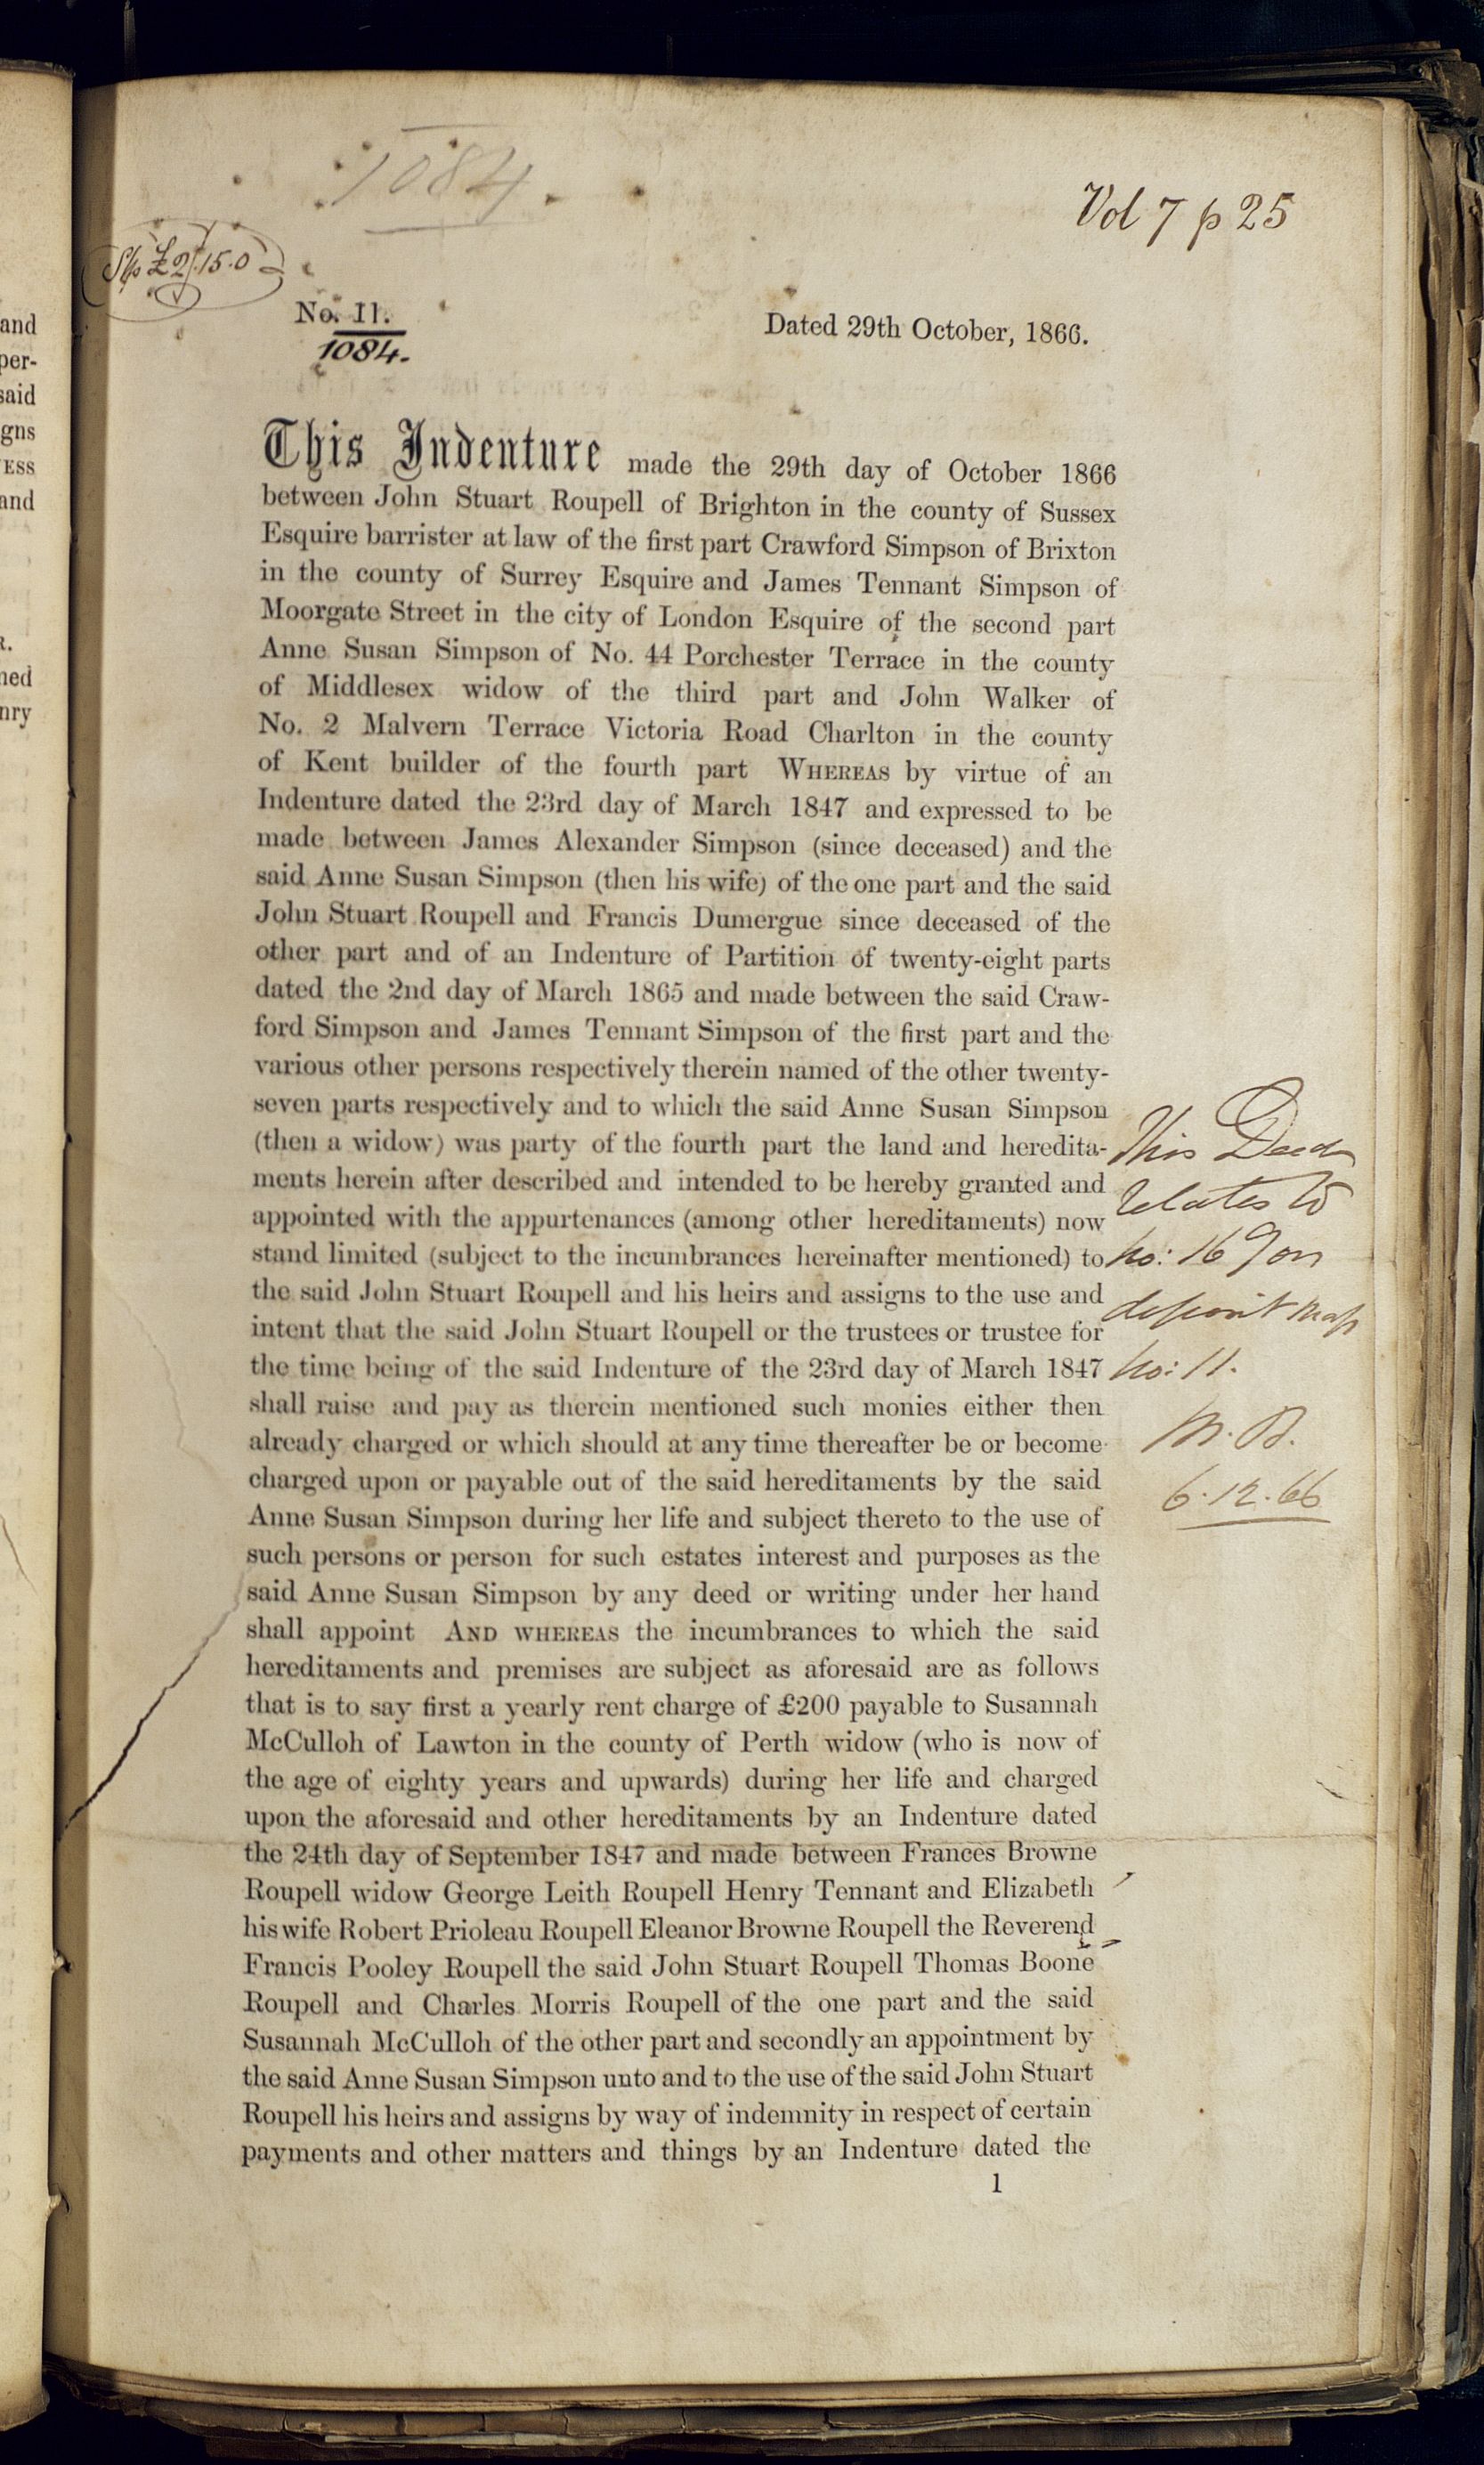 and
per-
said
gns
ESS
and
R.
ned
nry
1084.
Vol 7 p 25
£2.15.0
No. 11.
1084.
Dated 29th October, 1866.
This Indenture made the 29th day of October 1866
between John Stuart Roupell of Brighton in the county of Sussex
Esquire barrister at law of the first part Crawford Simpson of Brixton
in the county of Surrey Esquire and James Tennant Simpson of
Moorgate Street in the city of London Esquire of the second part
Anne Susan Simpson of No. 44 Porchester Terrace in the county
of Middlesex widow of the third part and John Walker of
No. 2 Malvern Terrace Victoria Road Charlton in the county
of Kent builder of the fourth part WHEREAS by virtue of an
Indenture dated the 23rd day of March 1847 and expressed to be
made between James Alexander Simpson (since deceased) and the
said Anne Susan Simpson (then his wife) of the one part and the said
John Stuart Roupell and Francis Dumergue since deceased of the
other part and of an Indenture of Partition of twenty-eight parts
dated the 2nd day of March 1865 and made between the said Craw-
ford Simpson and James Tennant Simpson of the first part and the
various other persons respectively therein named of the other twenty-
seven parts respectively and to which the said Anne Susan Simpson
(then a widow) was party of the fourth part the land and heredita-
ments herein after described and intended to be hereby granted and
appointed with the appurtenances (among other hereditaments) now
stand limited (subject to the incumbrances hereinafter mentioned) to
the said John Stuart Roupell and his heirs and assigns to the use and
intent that the said John Stuart Roupell or the trustees or trustee for
the time being of the said Indenture of the 23rd day of March 1847
shall raise and pay as therein mentioned such monies either then
already charged or which should at any time thereafter be or become
charged upon or payable out of the said hereditaments by the said
Anne Susan Simpson during her life and subject thereto to the use of
such persons or person for such estates interest and purposes as the
said Anne Susan Simpson by any deed or writing under her hand
shall appoint AND WHEREAS the incumbrances to which the said
hereditaments and premises are subject as aforesaid are as follows
that is to say first a yearly rent charge of £200 payable to Susannah
McCulloh of Lawton in the county of Perth widow (who is now of
the age of eighty years and upwards) during her life and charged
upon the aforesaid and other hereditaments by an Indenture dated
the 24th day of September 1847 and made between Frances Browne
Roupell widow George Leith Roupell Henry Tennant and Elizabeth
his wife Robert Prioleau Roupell Eleanor Browne Roupell the Reverend
Francis Pooley Roupell the said John Stuart Roupell Thomas Boone
Roupell and Charles Morris Roupell of the one part and the said
Susannah McCulloh of the other part and secondly an appointment by
the said Anne Susan Simpson unto and to the use of the said John Stuart
Roupell his heirs and assigns by way of indemnity in respect of certain
payments and other matters and things by an Indenture dated the
1
This Deed
relates to
no: 169 on
deposit map
no: 11.
6.12.66